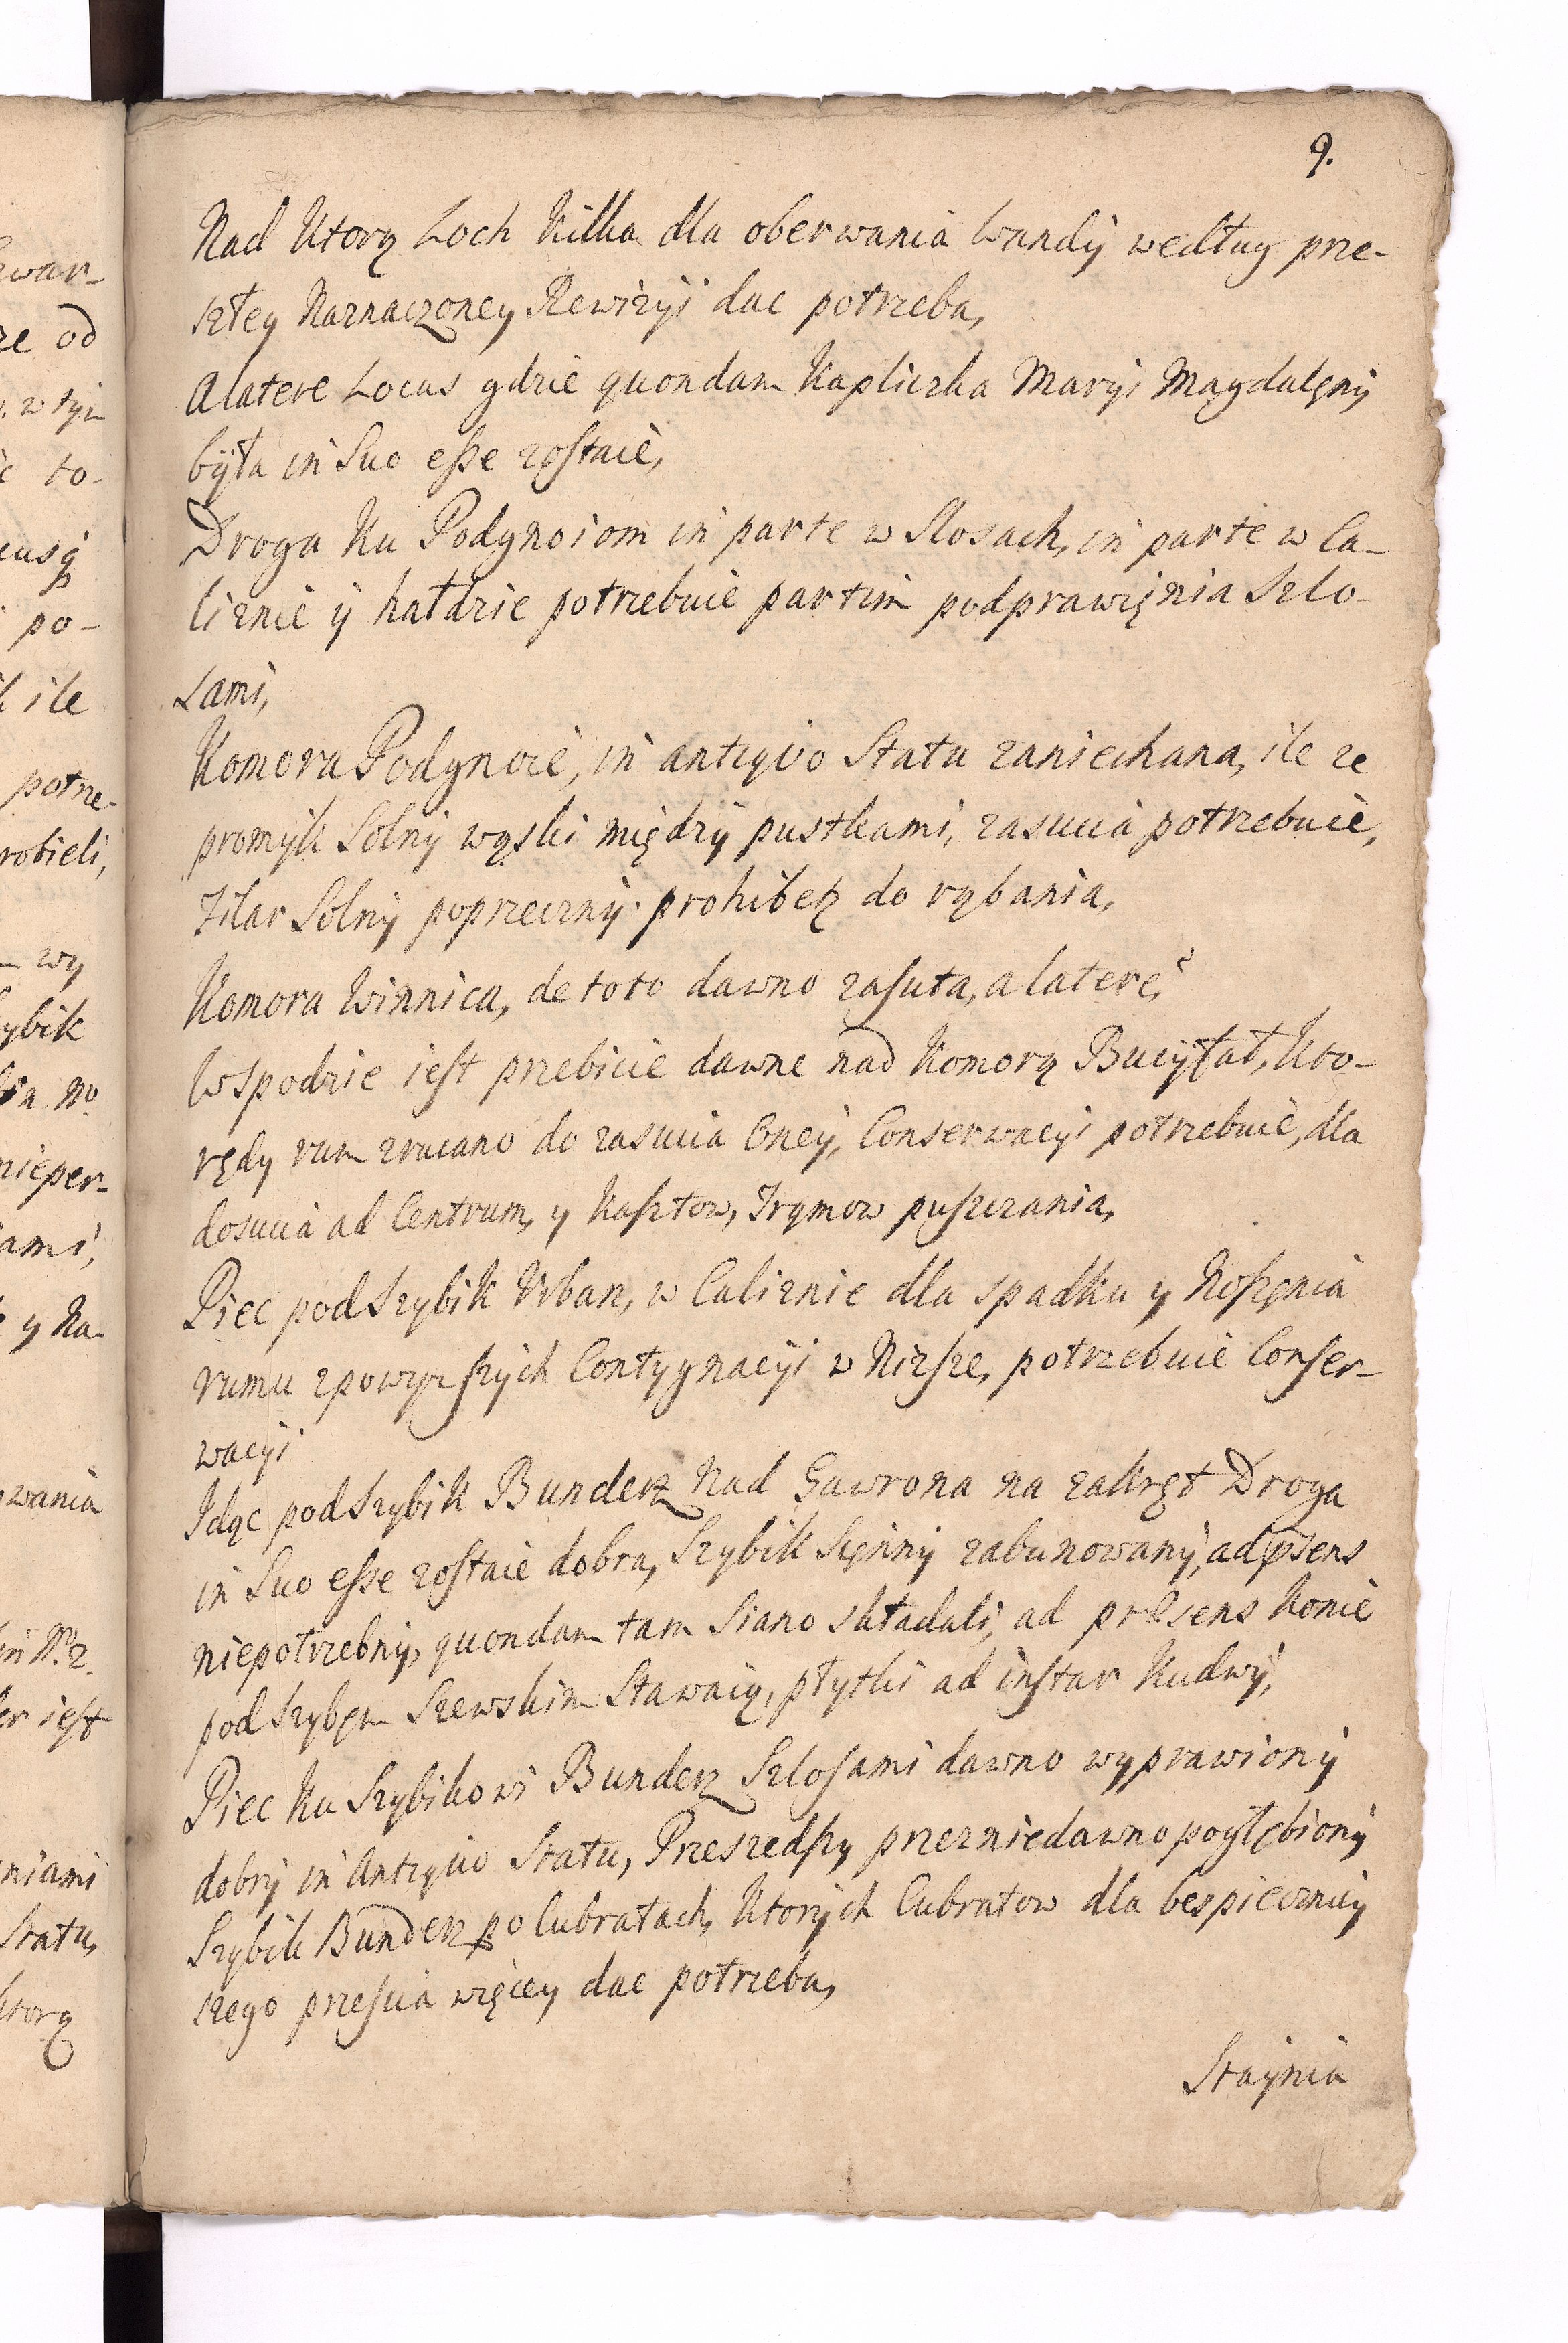 9.
Nad Ktorą Loch Kilka dla oberwania Wandÿ według prze-
szłey Naznaczoney Rewizyi dac potrzeba,
A latere Locus gdzie quondam Kapliczka Maryi Magdalęnÿ
bÿła in Suo esse zostaie,
Droga Ku Podgnoiom in parte w Slosach, in parte w Ca-
liznie ÿ hałdzie potrzebuie partim podprawięnia Szlo-
sami,
Komora Podgnoie, in antiquo Statu zaniechana, ile ze
promÿk Solnÿ wąski międzÿ pustkami, zasucia potrzebuie,
Filar Solnÿ poprzecznÿ prohibetz do rąbania,
Komora Winnica, de toto dawno zasuta, a latere,
Wspodzie iest przebicie dawne nad Komorą Bucÿłał, Kto-
rędy rum zrucano do zasucia Oneÿ, Conserwacyi potrzebuie, dla
dosucia ad Centrum, y Kasztow, Trąmow puszczania,
Piec pod Szybik Urban, w Caliznie dla spadku y Noszęnia
rumu zpowyzszÿch Contygnacÿi w Nizsze, potrzebuie Conser-
wacÿi
Idąc pod Szybik Bunderz Nad Gawrona na zakręt Droga
in Suo esse zostaie dobra, Szybik Sięnnÿ zabunowanÿ, ad psens
niepotrzebnÿ, quondam tam Siano składali, ad præsens Konie
pod Szybęm Szewskim Stawaią, płytki ad instar Kudwÿ,
Piec Ku Szybikowi Bunderz Szlosami dawno wyprawionÿ
dobrÿ in Antiquo Statu, Przeszedszy przezniedawno pogłębionÿ
Szybik Bunderz po Cubratach, Ktorÿch Cubratow dla bespiecznieÿ
szego przescia więcey dac potrzeba,
Staÿnia